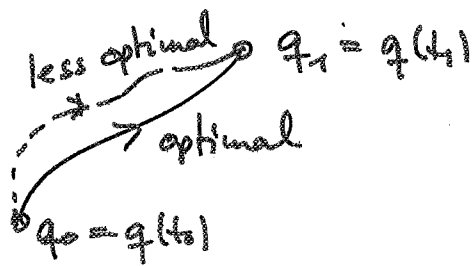 less optimal
q₁ = q(t₁)
optimal
q₀ = q(t₀)